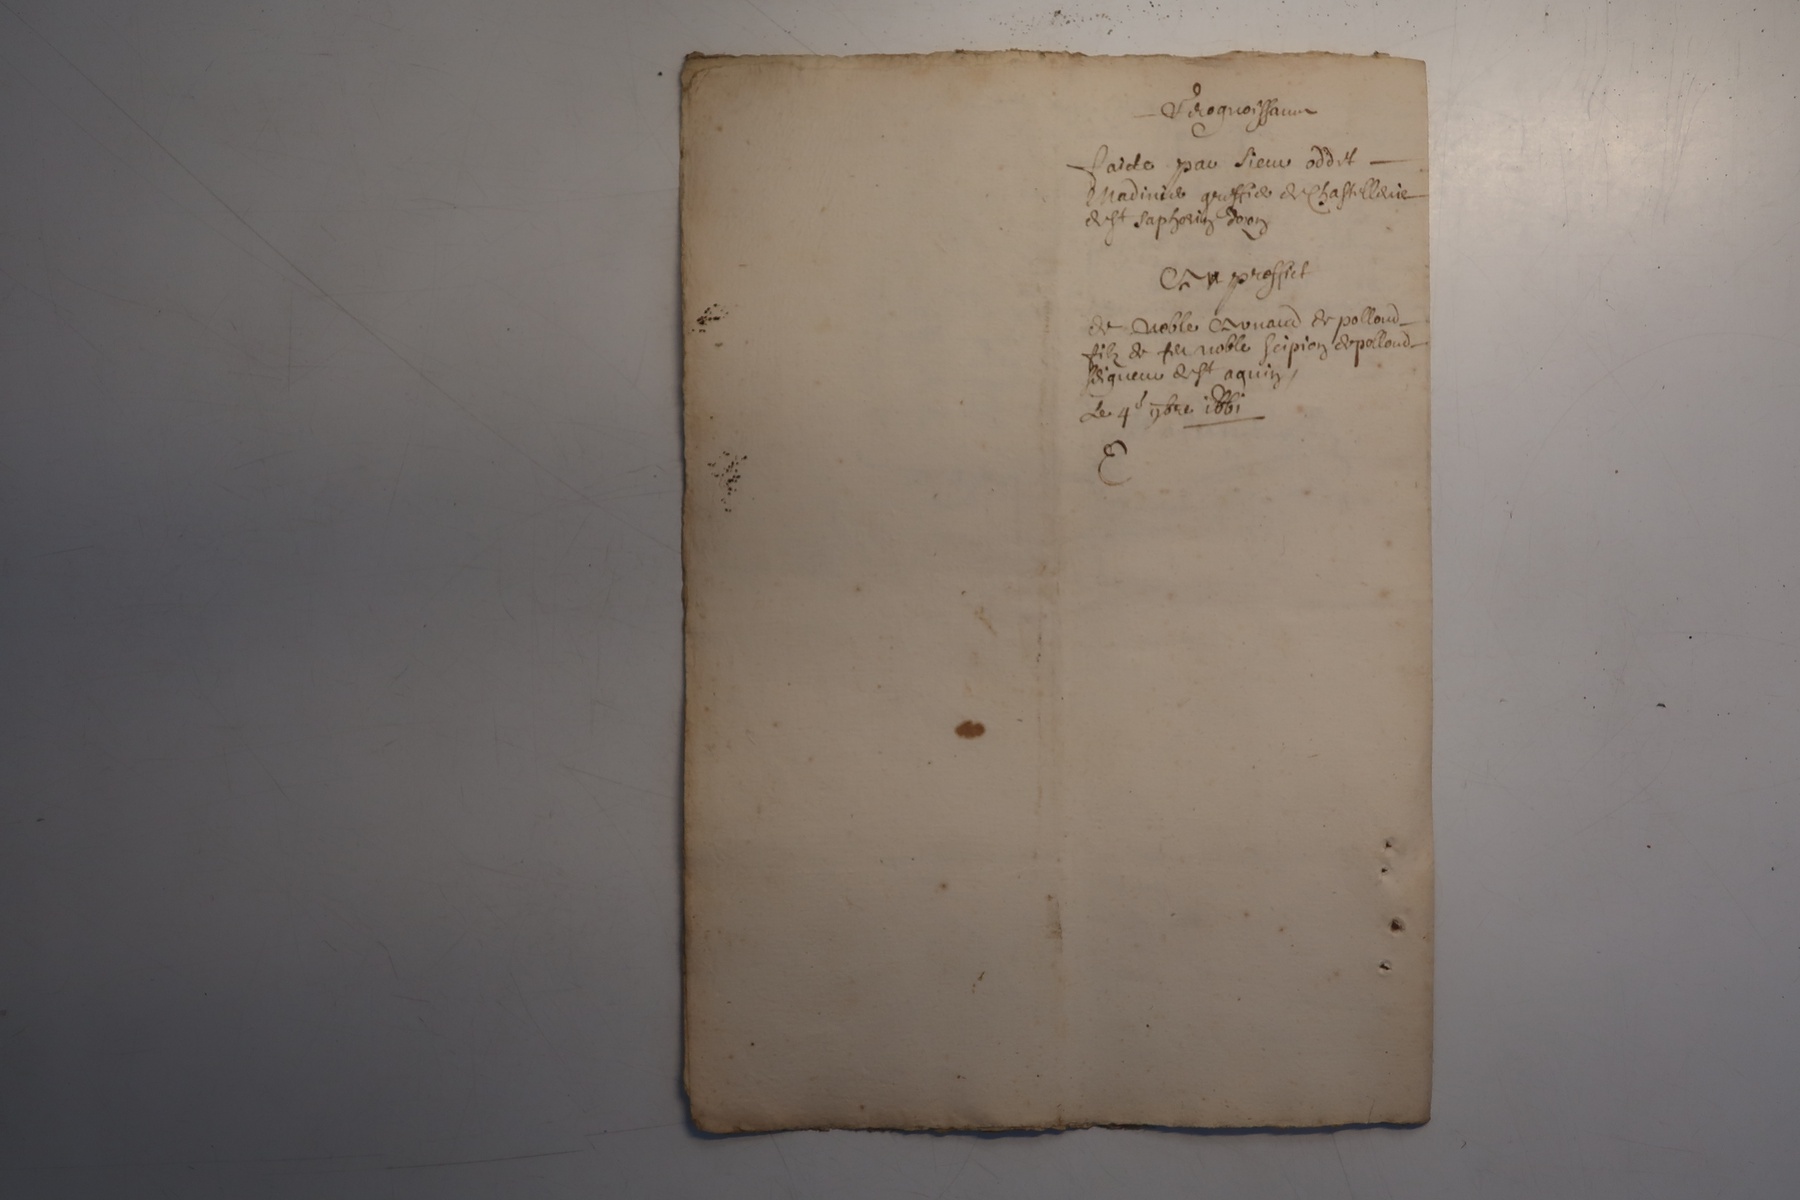 Recognoissance
Faicte par Sieur oddet
Madinier greffier de Chastellenie
de st Saphorin dozon
Au proffict
de Noble Arnaud de polloud
filz de feu noble Scipion de polloud
seigneur de st aguin
Le 4e 9bre 1661